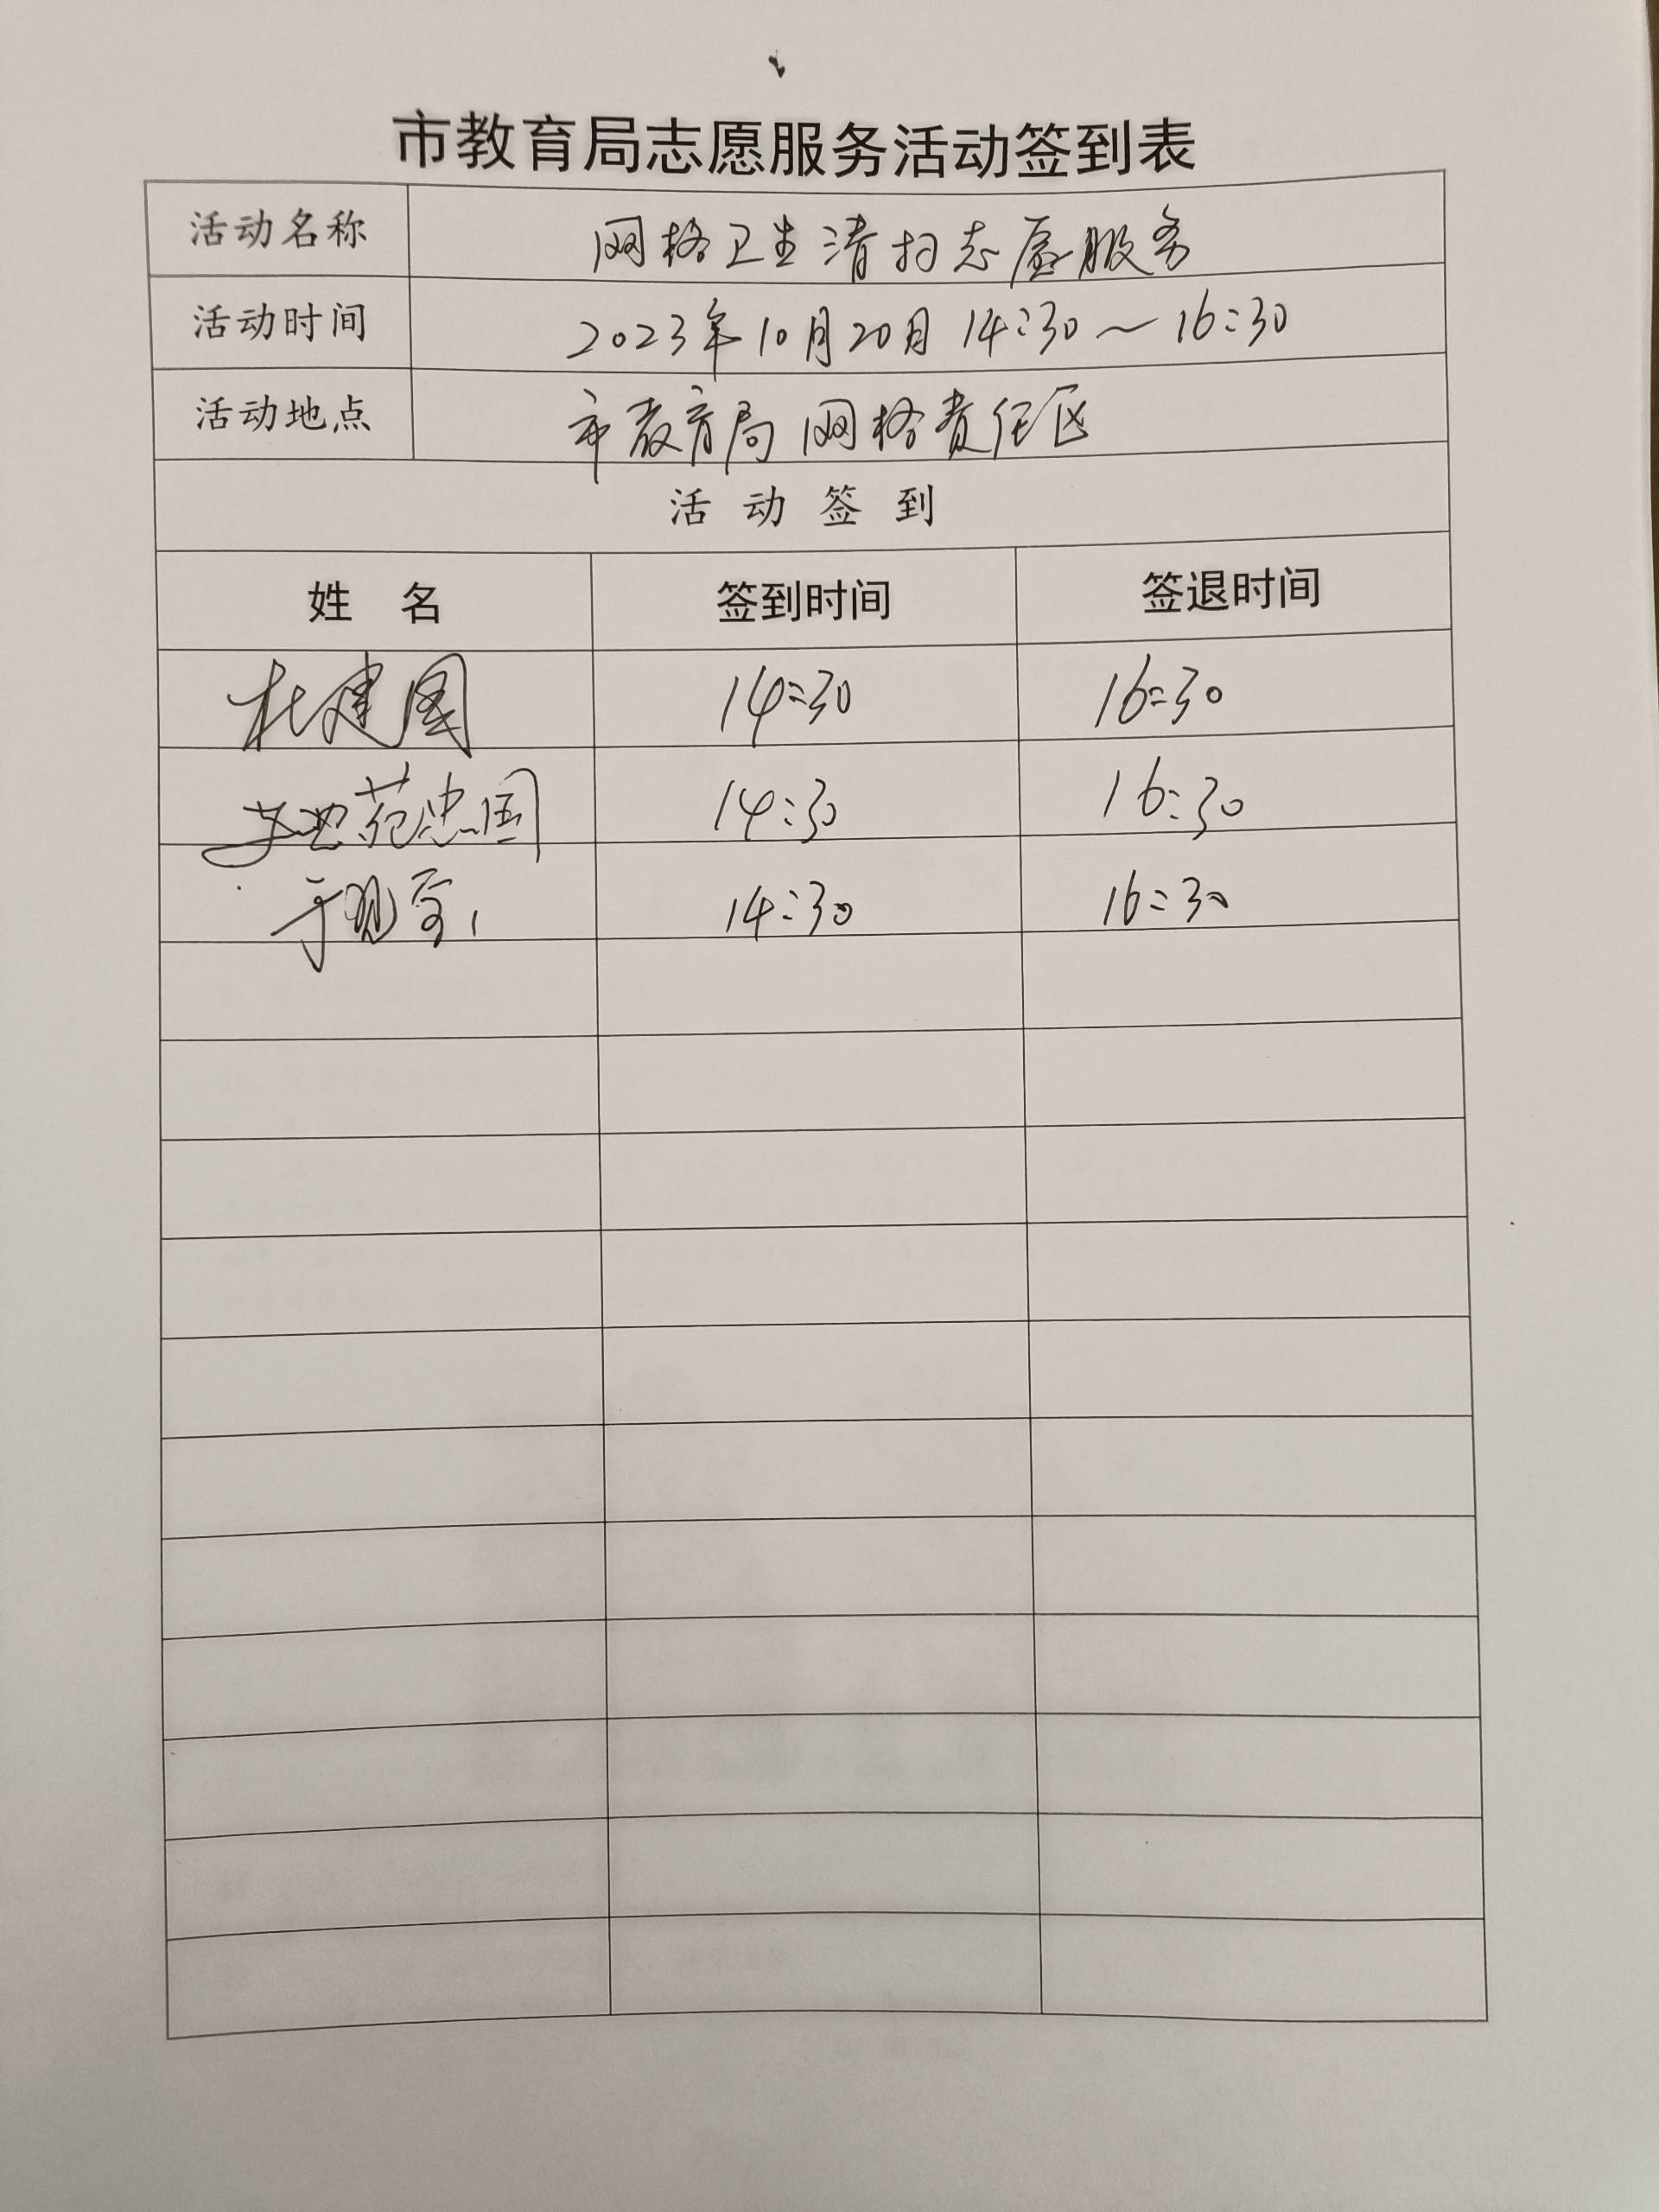 市教育局志愿服务活动签到表
活动名称 网格卫生清扫志愿服务
活动时间 2023年10月20日 14:30~16:30
活动地点 市教育局网格责任区
活动签到
姓 名 签到时间 签退时间
杜建国 14:30 16:30
范忠国 14:30 16:30
于 14:30 16:30